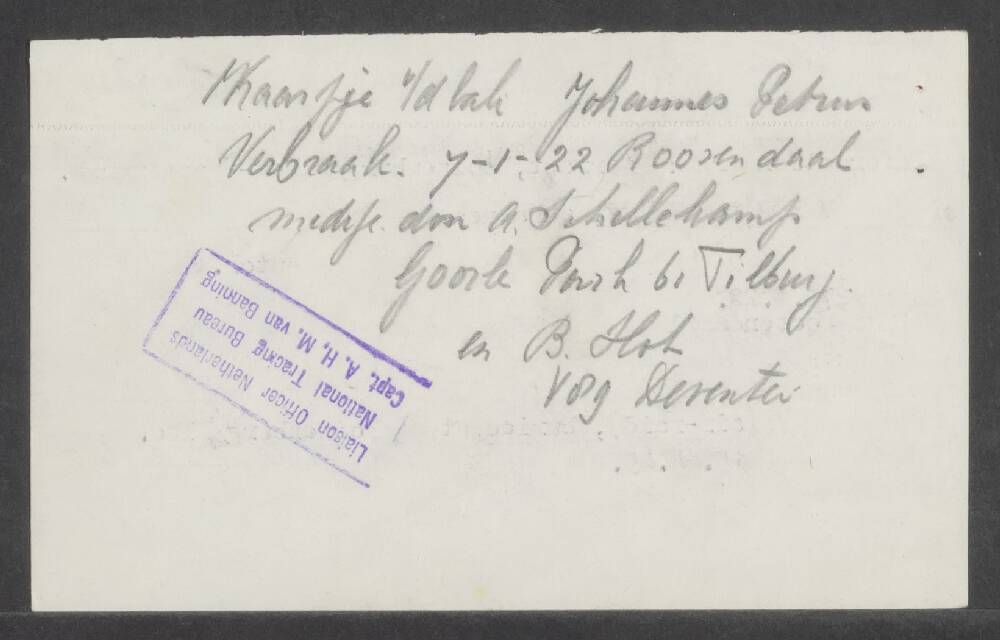 Kaartje i/d bak Johannes Petrus
Verbraak. 7-1-22 Roosendaal
medege. door A. Schellekamp
Goorle bi Tilburg
en B. Slot
Deventer
Liaison Officer Netherlands
National Tracing Bureau
Capt. A. H. M. van Banning